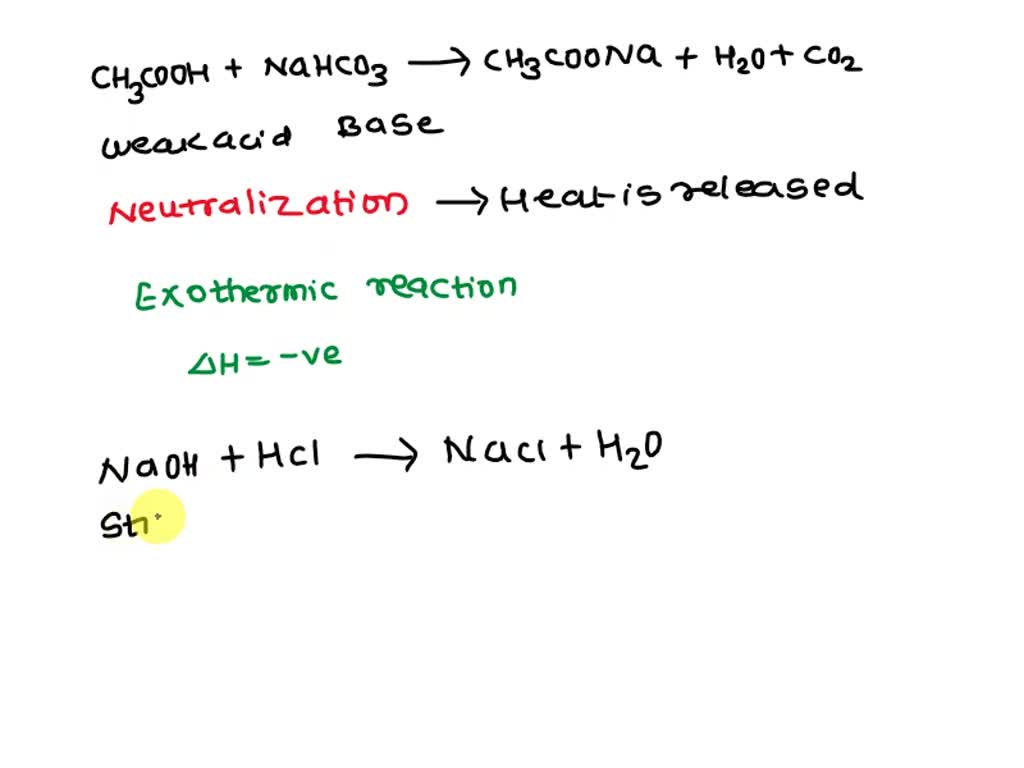 CH3COOH + NaHCO3 → CH3COONa + H2O + CO2
weak acid Base
Neutralization → Heat is released
Exothermic reaction
ΔH = -ve
NaOH + HCl → NaCl + H2O